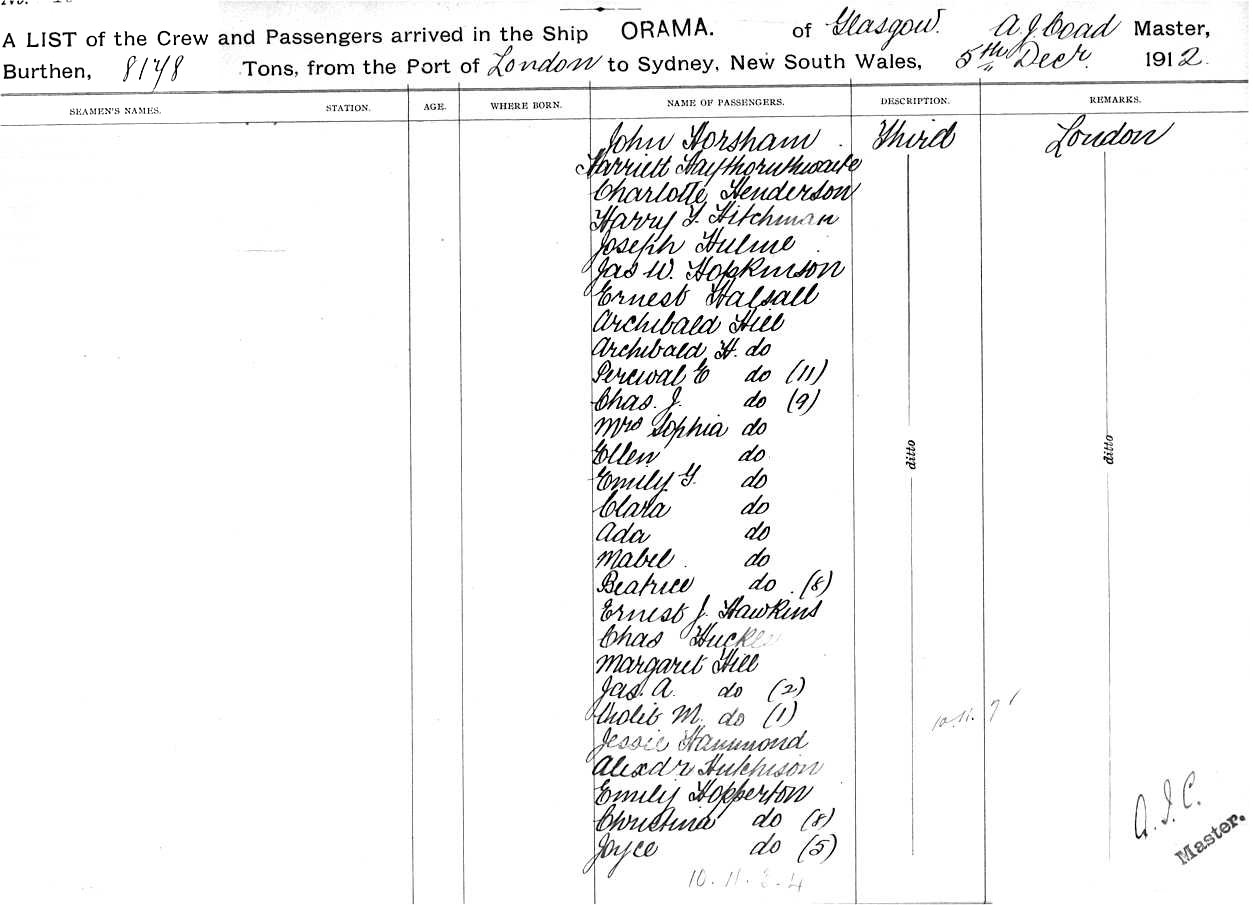 A LIST of the Crew and Passengers arrived in the Ship ORAMA. of Glasgow. A. J. Coad Master,
Burthen, 8148 Tons, from the Port of London to Sydney, New South Wales, 5th Decr. 1912.
SEAMEN'S NAMES. STATION. AGE. WHERE BORN. NAME OF PASSENGERS. DESCRIPTION. REMARKS.
John Horsham Third London
Harriett Haythornthwaite
Charlotte Henderson
Harry Hitchman
Joseph Hulme
Jas W. Hopkinson
Ernest Halsall
Archibald Hill
Archibald H. do
Percival E do (11)
Chas. J. do (9)
Mrs Sophia do
ditto ditto
Ellen do
Emily G. do
Clara do
Ada do
Mabel do
Beatrice do (8)
Ernest J. Hawkins
Chas
Margaret Hill
Jas. A. do (2)
M. do (1)
Jessie Hammond
Alexdr Hutchison
Emily Hopperton
Christina do (8)
Joyce do (5)
10. 11. 3. 4
A. J. C.
Master.